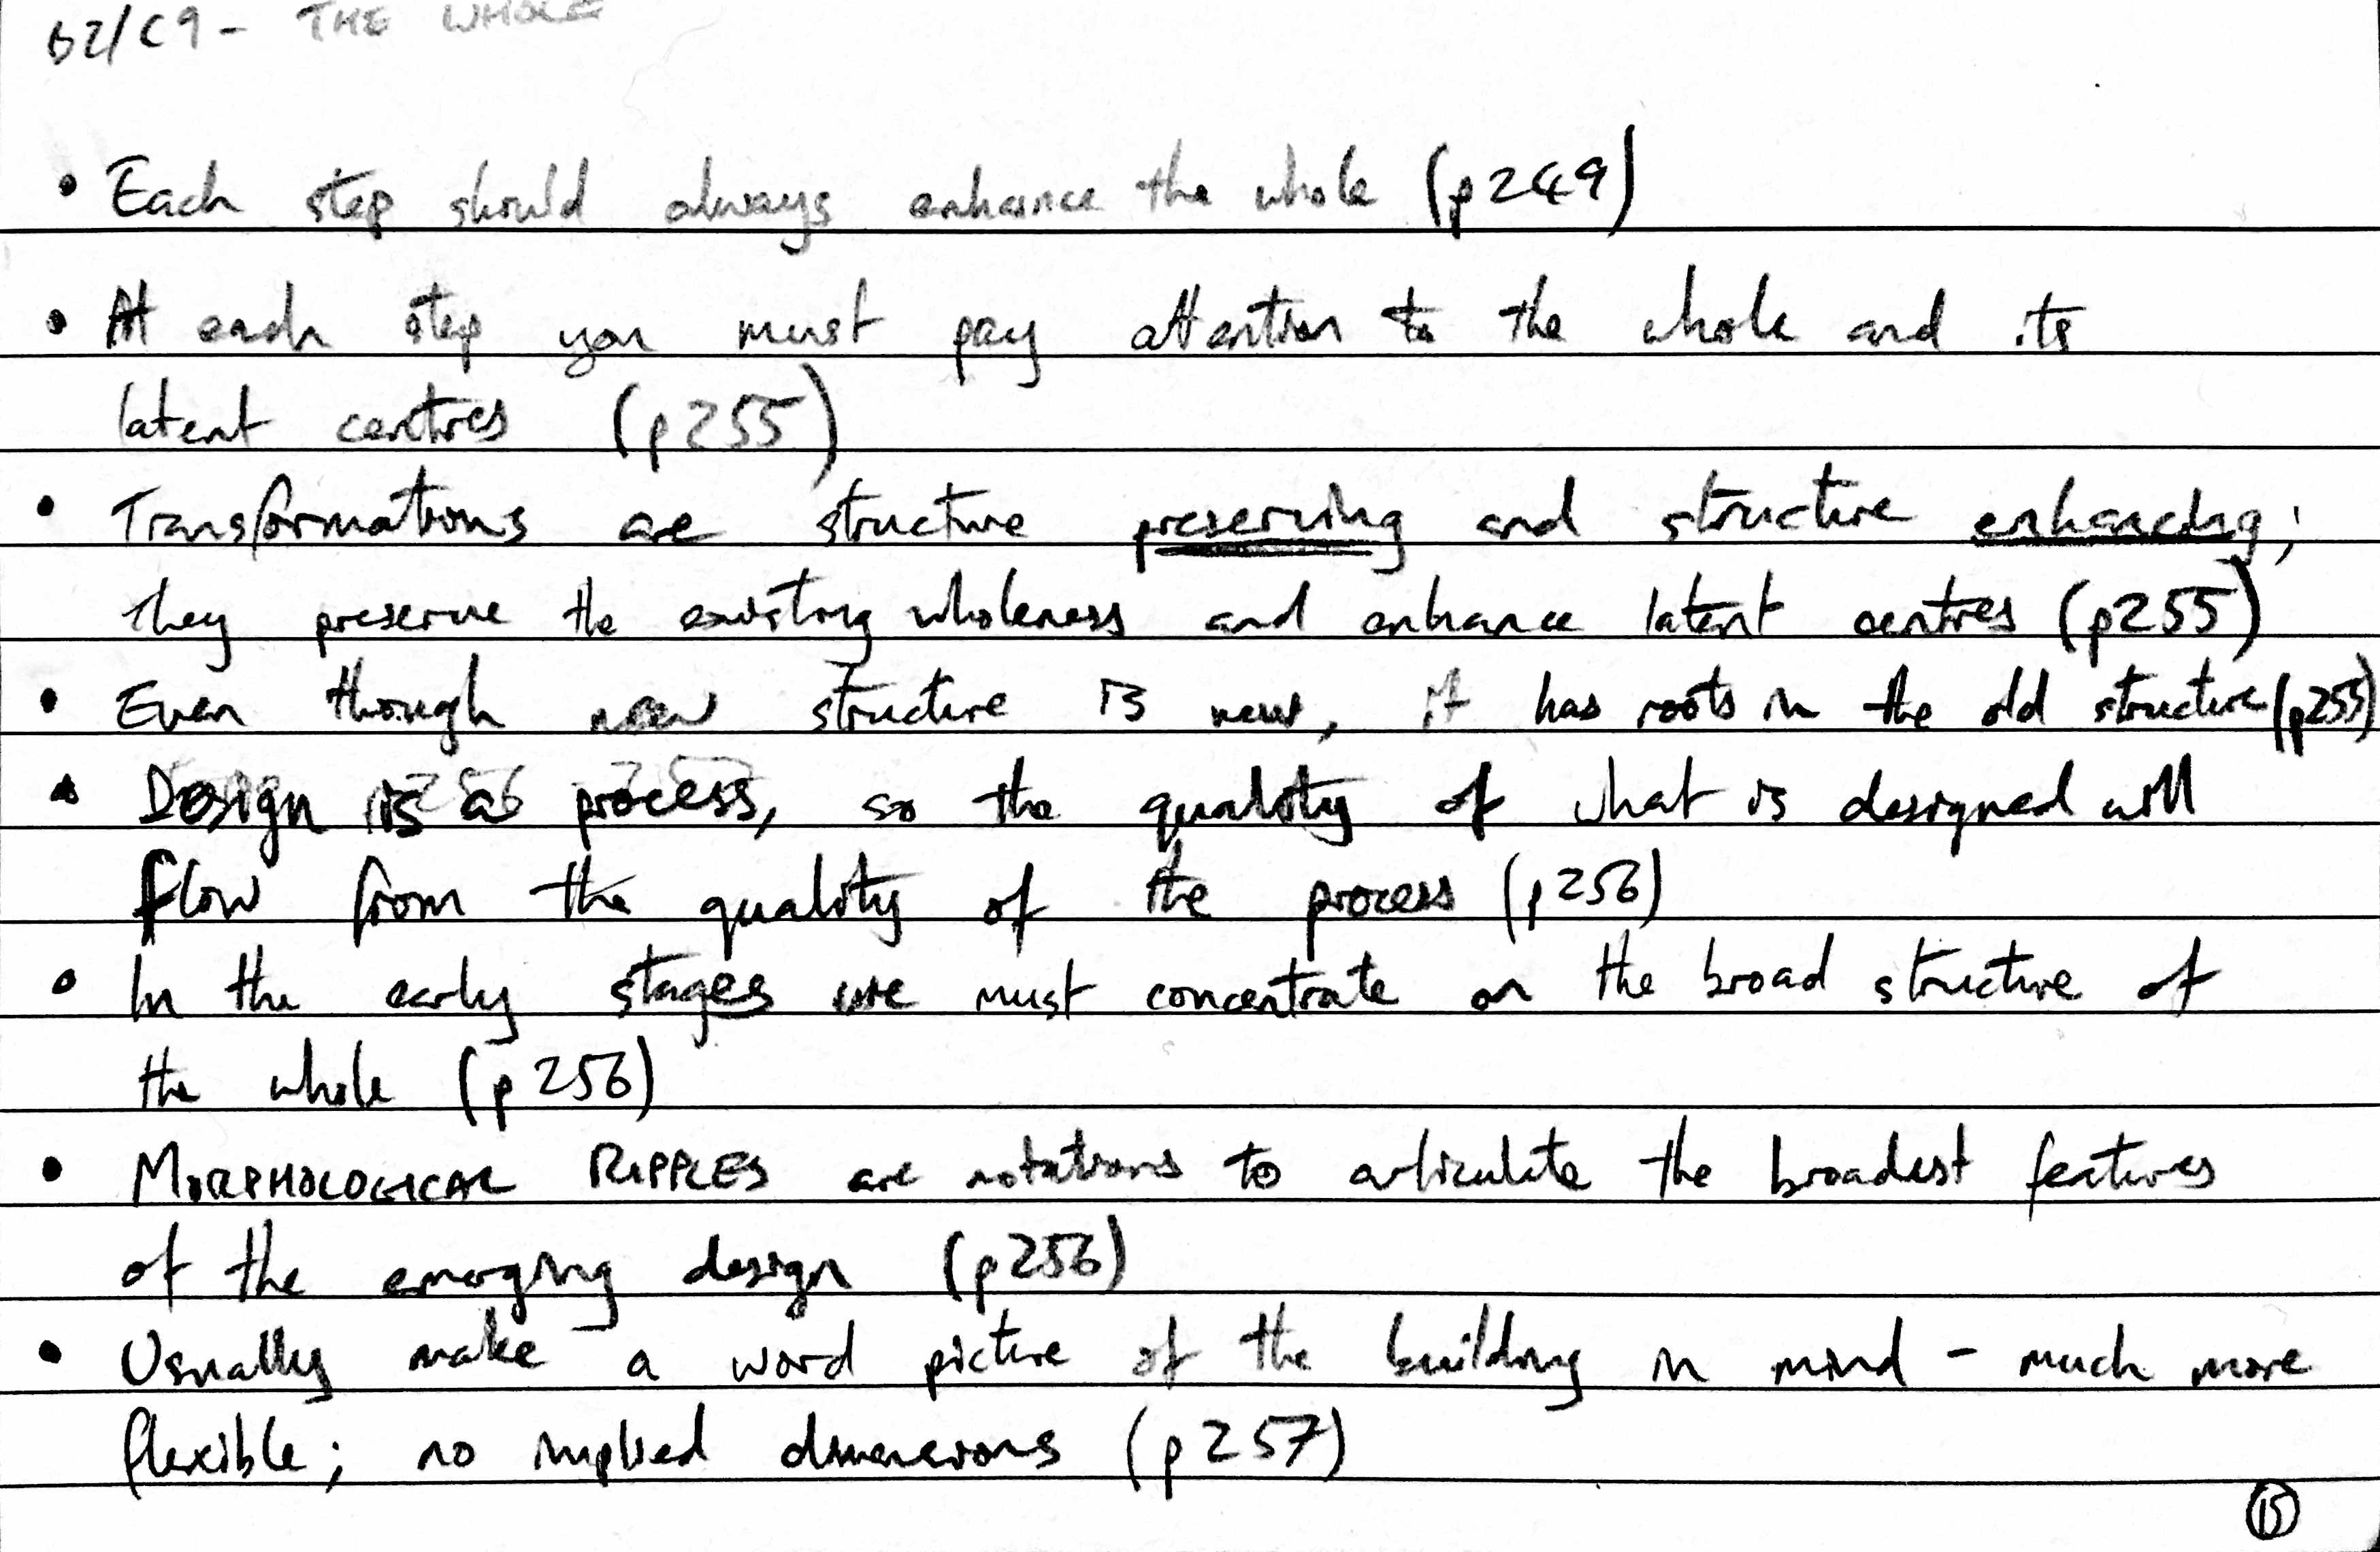 B2/C9 - THE WHOLE
• Each step should always enhance the whole (p249)
• At each step you must pay attention to the whole and its
latent centres (p255)
• Transformations are structure preserving and structure enhancing;
they preserve the existing wholeness and enhance latent centres (p255)
• Even though new structure is new, it has roots in the old structure (p255)
• Design is a process, so the quality of what is designed will
flow from the quality of the process (p256)
• In the early stages we must concentrate on the broad structure of
the whole (p256)
• MORPHOLOGICAL RIPPLES are notations to articulate the broadest features
of the emerging design (p256)
• Usually make a word picture of the building in mind - much more
flexible; no implied dimensions (p257)
15